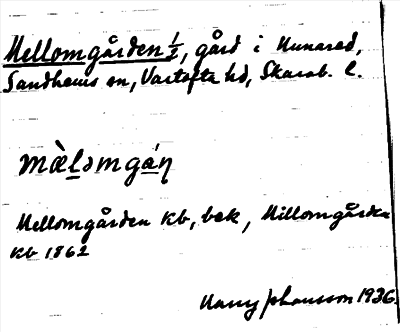 Mellomgården 1/2, gård i Kunared,
Sandhems sn, Vartofta hd, Skarab. l.
mæ̀lǝmgáɳ
Mellomgården kb, bek, Millomgården
kb 1862
Harry Johansson 1936.